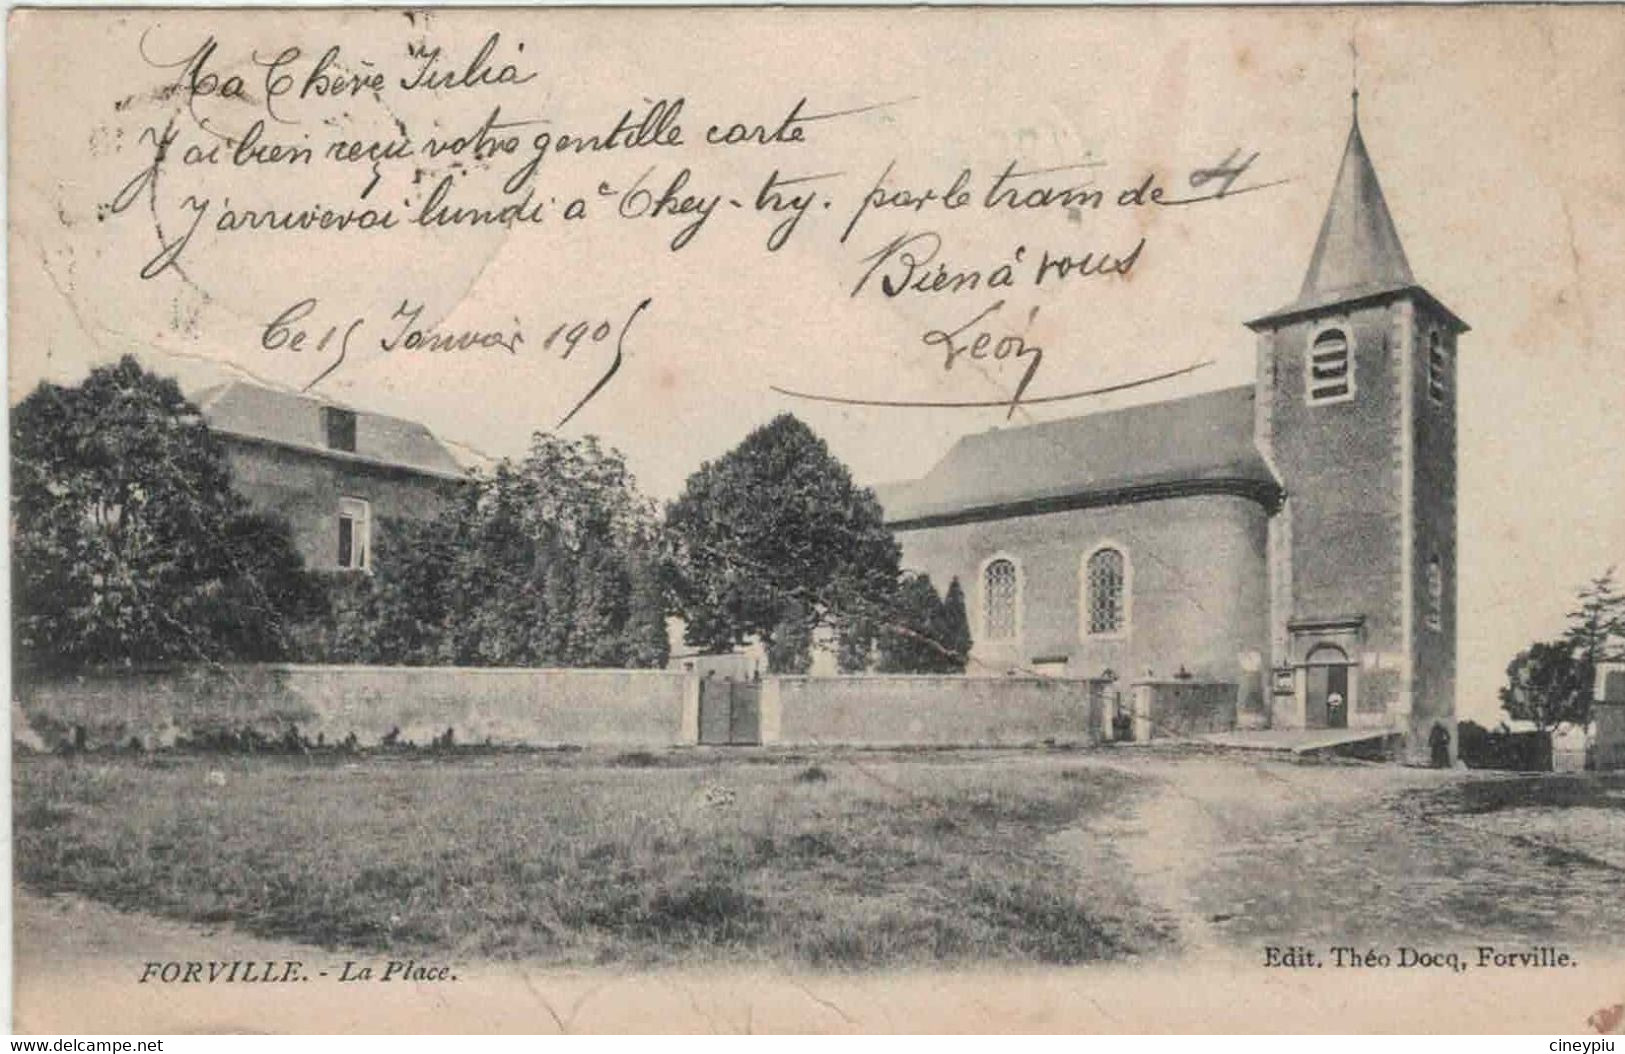 Ma Chère Julia
J'ai bien reçu votre gentille carte
J'arriverai lundi à Chey-try. par le tram de 4
Bien à vous
Ce 15 Janvier 1905
Léon
FORVILLE. - La Place.
Edit. Théo Docq, Forville.
www.delcampe.net
cineypiu